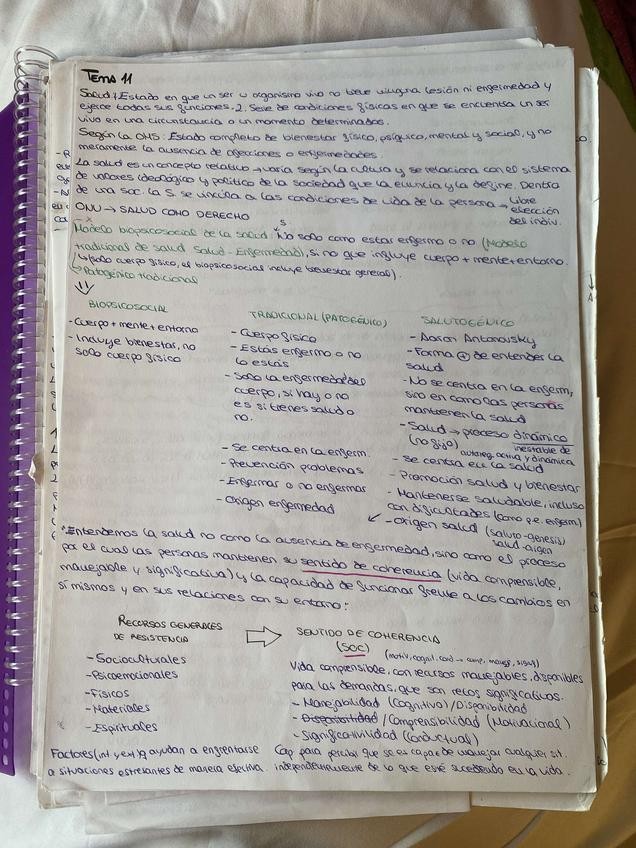 TEMA 11
Salud: 1. Estado en que un ser u organismo vivo no tiene ninguna lesión ni enfermedad y
ejerce todas sus funciones. 2. Serie de condiciones físicas en que se encuentra un ser
vivo en una circunstancia o un momento determinados.
Según la OMS: Estado completo de bienestar físico, psíquico, mental y social, y no
meramente la ausencia de afecciones o enfermedades.
La salud es un concepto relativo → varía según la cultura y se relaciona con el sistema
de valores ideológico y político de la sociedad que la enuncia y la define. Dentro
de una soc. la S. se vincula a las condiciones de vida de la persona → Libre
elección
del indiv.
ONU → SALUD COMO DERECHO
Modelo biopsicosocial de la salud: No solo como estar enfermo o no (Modelo
tradicional de salud Salud-Enfermedad), si no que influye cuerpo + mente + entorno.
↳ (solo cuerpo físico, el biopsicosocial incluye bienestar general).
↳ Patogénico tradicional
BIOPSICOSOCIAL
- Cuerpo + mente + entorno
- Incluye bienestar, no
solo cuerpo físico
TRADICIONAL (PATOGÉNICO)
- Cuerpo físico
- Estás enfermo o no
lo estás
- Solo la enfermedad del
cuerpo, si hay o no
es si tienes salud o
no.
- Se centra en la enferm.
- Prevención problemas
- Enfermar o no enfermar
- Origen enfermedad
SALUTOGÉNICO
- Aaron Antonovsky
- Forma ⊕ de entender la
salud
- No se centra en la enferm,
sino en como las personas
mantienen la salud
- Salud → proceso dinámico
(no fijo) inestable de
autoreg. activa y dinámica
- Se centra en la salud
- Promoción salud y bienestar
- Mantenerse saludable, incluso
con dificultades (como p.e. enferm)
- Origen salud (saluto-genesis)
salud-origen
* Entendemos la salud no como la ausencia de enfermedad, sino como el proceso
por el cual las personas mantienen su sentido de coherencia (vida comprensible,
manejable y significativa) y la capacidad de funcionar frente a los cambios en
sí mismos y en sus relaciones con su entorno:
RECURSOS GENERALES
DE RESISTENCIA
- Socioculturales
- Psicoemocionales
- Físicos
- Materiales
- Espirituales
Factores (int y ext) q ayudan a enfrentarse
a situaciones estresantes de manera efectiva.
SENTIDO DE COHERENCIA
(SOC) (motiv, cognit, cond → comp, manej, signif)
Vida comprensible, con recursos manejables, disponibles
para las demandas, que son retos significativos.
- Manejabilidad (Cognitivo) / Disponibilidad
- Disponibilidad / Comprensibilidad (Motivacional)
- Significatividad (Conductual)
Cap para percibir que se es capaz de manejar cualquier sit.
independientemente de lo que esté sucediendo en la vida.